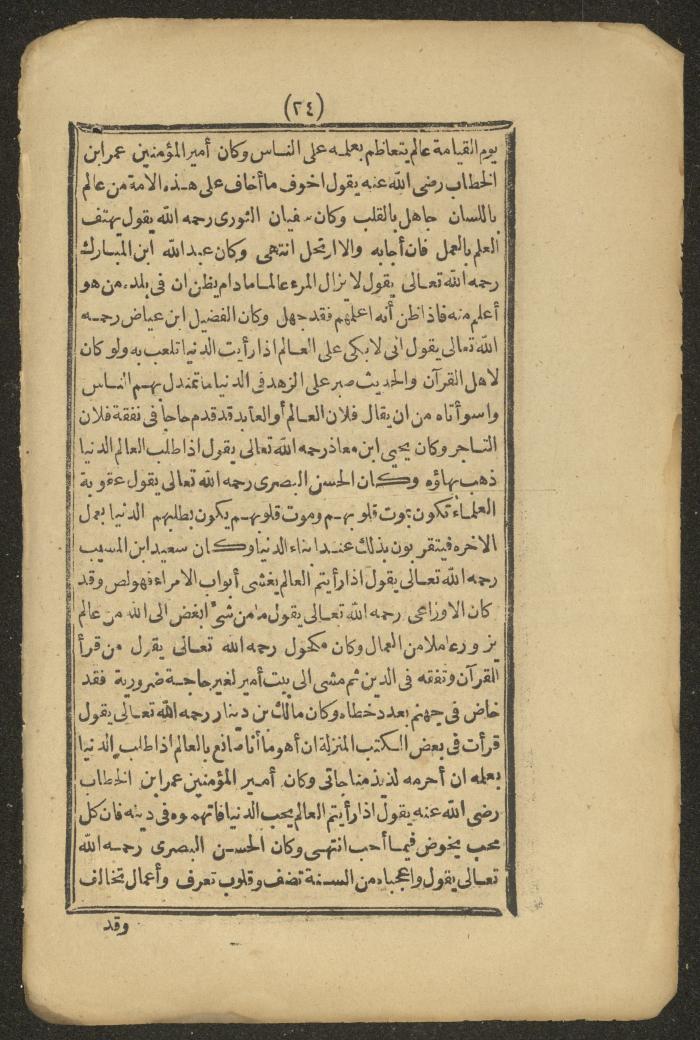 (٢٤)
يوم القيامة عالم يتعاظم بعلمه على الناس وكان أمير المؤمنين عمر ابن
الخطاب رضى الله عنه يقول اخوف ما أخاف على هذه الامة من عالم
باللسان جاهل بالقلب وكان سفيان الثورى رحمه الله يقول يهتف
العلم بالعمل فان أجابه والا ارتحل انتهى وكان عبد الله ابن المبارك
رحمه الله تعالى يقول لا يزال المرء عالما مادام يظن ان فى بلده من هو
أعلم منه فاذا ظن أنه اعلمهم فقد جهل وكان الفضيل ابن عياض رحمه
الله تعالى يقول انى لابكى على العالم اذا رأيت الدنيا تلعب به ولو كان
لاهل القرآن والحديث صبر على الزهد فى الدنيا ما تمندل بهم الناس
واسوأتاه من ان يقال فلان العالم أو العابد قد قدم حاجا فى نفقة فلان
التاجر وكان يحيى ابن معاذ رحمه الله تعالى يقول اذا طلب العالم الدنيا
ذهب بهاؤه وكان الحسن البصرى رحمه الله تعالى يقول عقوبة
العلماء تكون بموت قلوبهم وموت قلوبهم يكون بطلبهم الدنيا بعمل
الاخره فيتقربون بذلك عند ابناء الدنيا وكان سعيد ابن المسيب
رحمه الله تعالى يقول اذا رأيتم العالم يغشى أبواب الامراء فهو لص وقد
كان الاوزاعى رحمه الله تعالى يقول ما من شئ ابغض الى الله من عالم
يزور عاملا من العمال وكان مكحول رحمه الله تعالى يقول من قرأ
القرآن وتفقه فى الدين ثم مشى الى بيت أمير لغير حاجة ضرورية فقد
خاض فى جهنم بعدد خطاه وكان مالك بن دينار رحمه الله تعالى يقول
قرأت فى بعض الكتب المنزلة ان أهون ما أنا صانع بالعالم اذا طلب الدنيا
بعلمه ان أحرمه لذيذ مناجاتى وكان أمير المؤمنين عمر ابن الخطاب
رضى الله عنه يقول اذا رأيتم العالم يحب الدنيا فاتهموه فى دينه فان كل
محب يخوض فيما أحب انتهى وكان الحسن البصرى رحمه الله
تعالى يقول واعجباه من السنة تصف وقلوب تعرف وأعمال تخالف
وقد